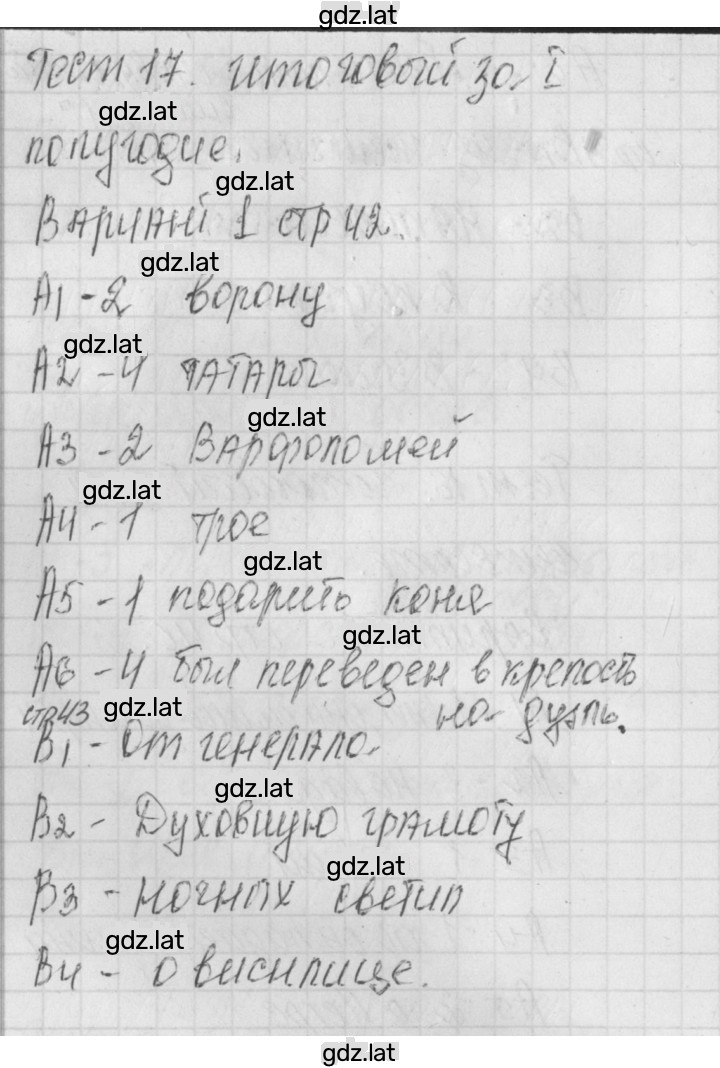 gdz.lat
Тест 17. итоговый за I
gdz.lat
полугодие.
gdz.lat
Вариант 1 стр 42.
gdz.lat
А1 - 2 ворону
gdz.lat
А2 - 4 татары
gdz.lat
А3 - 2 Варфоломей
gdz.lat
А4 - 1 трое
gdz.lat
А5 - 1 подарить коня
gdz.lat
А6 - 4 был переведен в крепость
стр43 gdz.lat на дуэль.
В1 - От генерала.
gdz.lat
В2 - Духовную грамоту
gdz.lat
В3 - ночных светил
gdz.lat
В4 - о висилице.
gdz.lat